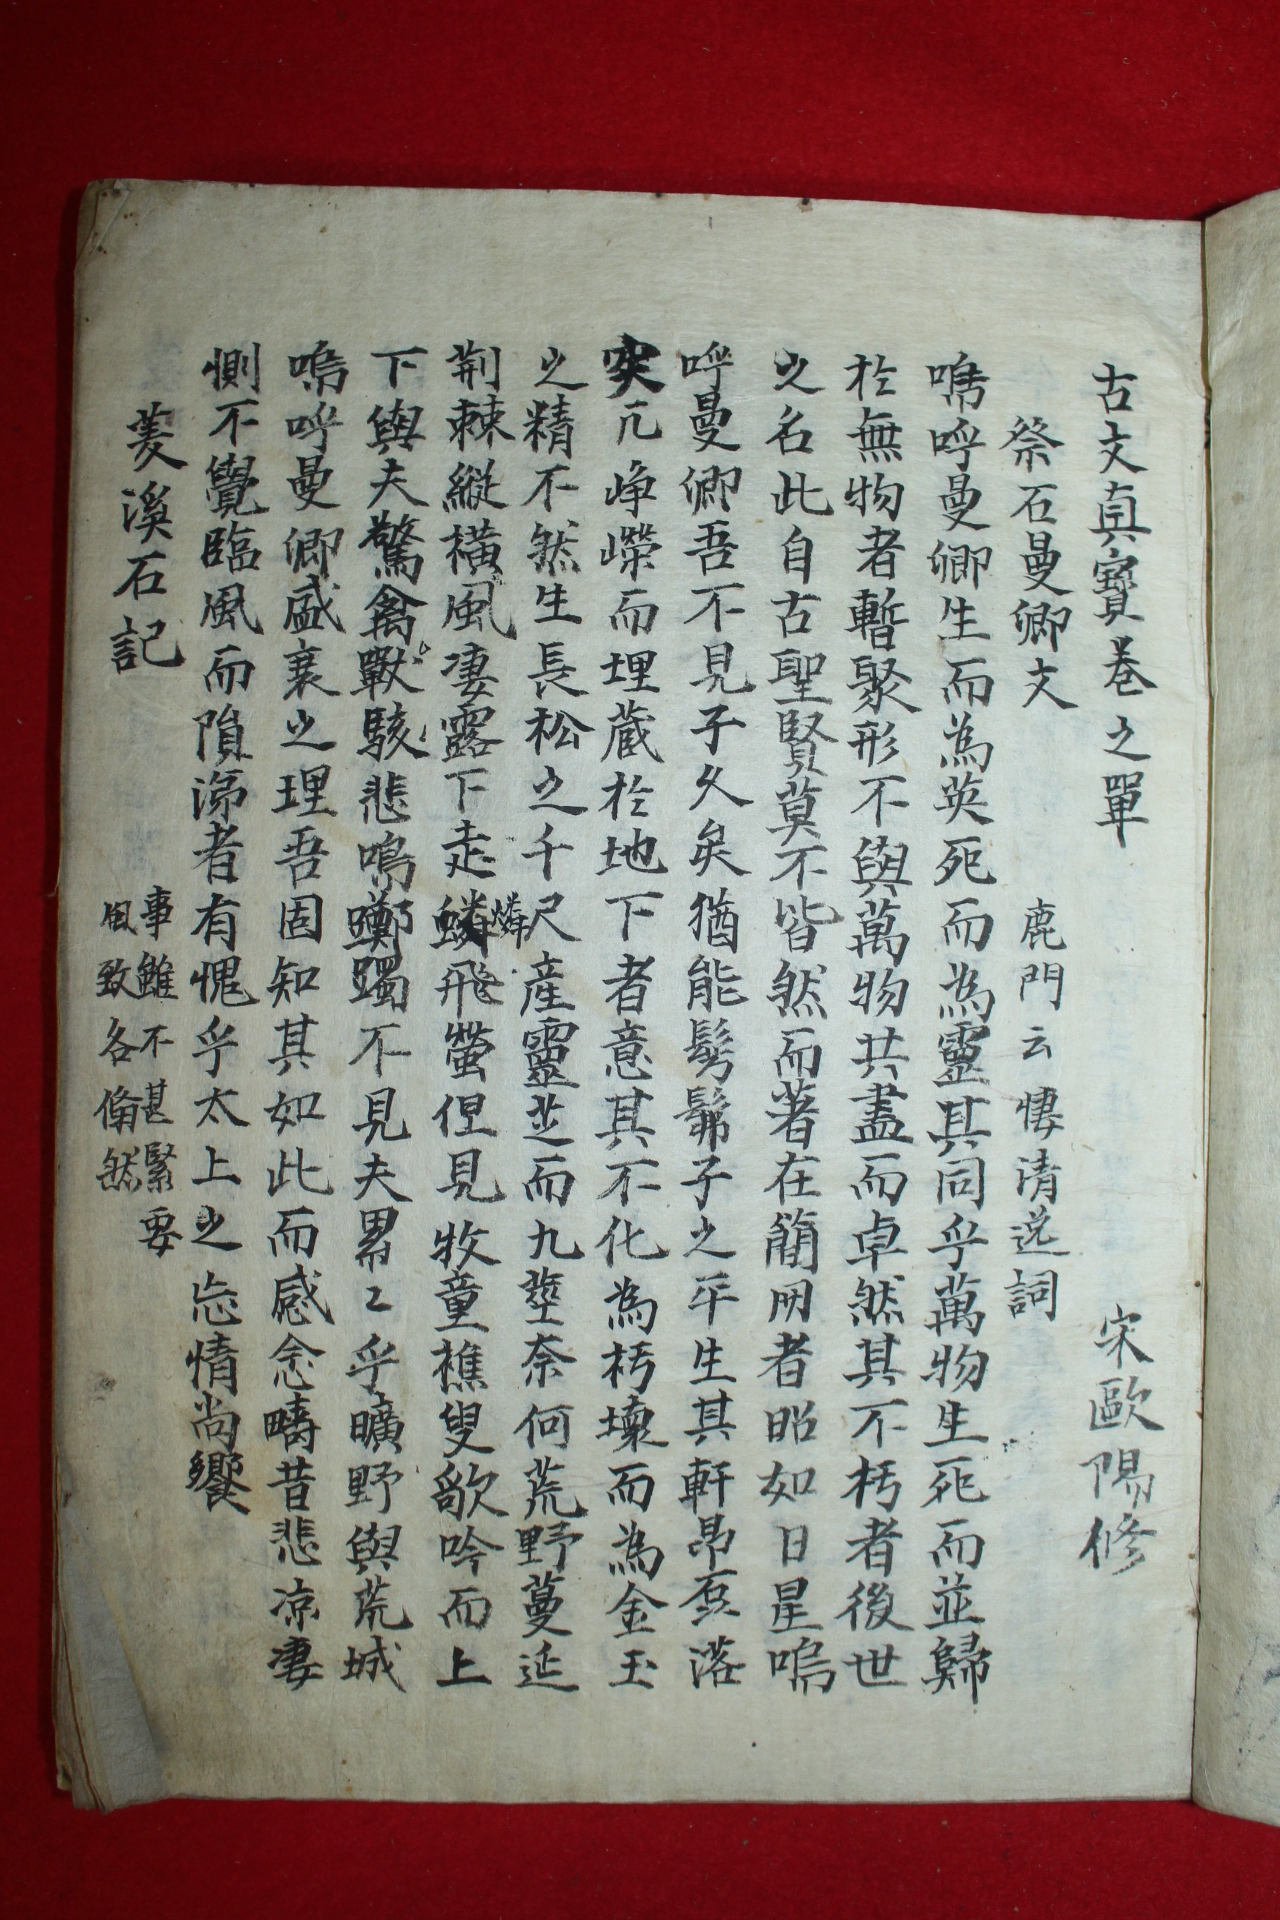 古文真寶卷之單 宋歐陽修
祭石曼卿文 鹿門云悽清逸詞
嗚呼曼卿生而為英死而為靈其同乎萬物生死而並歸
於無物者暫聚形不與萬物共盡而卓然其不朽者後世
之名此自古聖賢莫不皆然而著在簡冊者昭如日星嗚
呼曼卿吾不見子久矣猶能髣髴子之平生其軒昂磊落
突兀崢嶸而埋藏於地下者意其不化為朽壞而為金玉
之精不然生長松之千尺產靈芝而九莖奈何荒野蔓延
荊棘縱橫風凄露下走鱗燐飛螢但見牧童樵叟歌吟而上
下與夫驚禽獸駭悲鳴躑躅不見夫累〻乎曠野與荒城
嗚呼曼卿盛衰之理吾固知其如此而感念疇昔悲凉凄
惻不覺臨風而隕涕者有愧乎太上之忘情尚饗
菱溪石記 事雖不甚緊要
風致各翛然